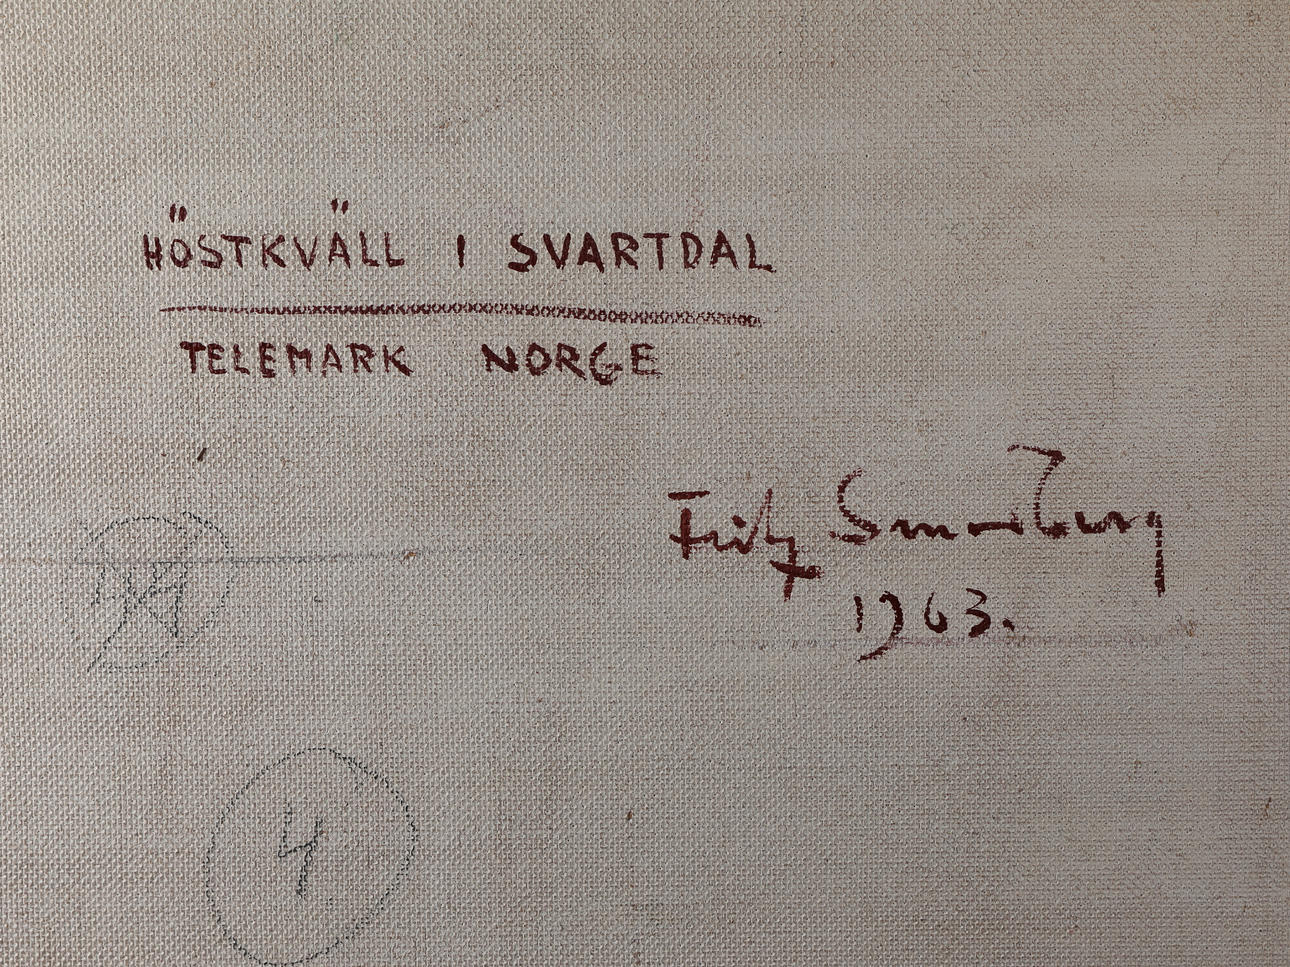 HÖSTKVÄLL I SVARTDAL
TELEMARK NORGE
Fritz
1963.
4